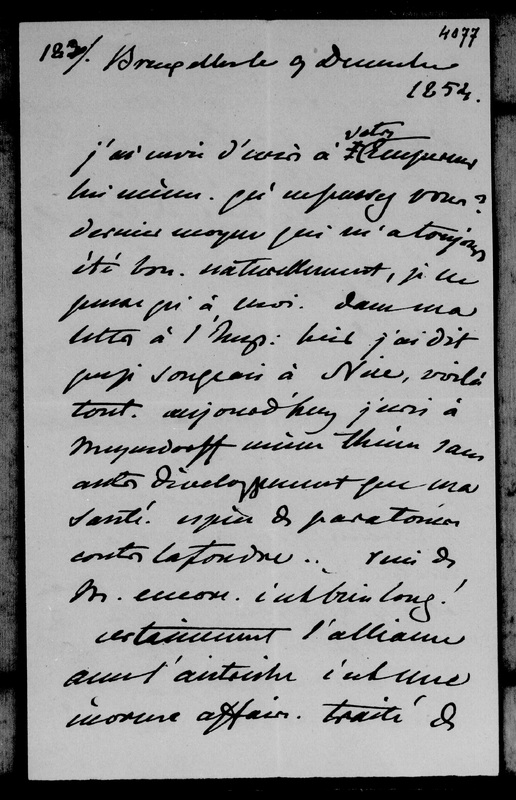 4077
183/. Bruxelles le 9 Decembre
1854.
j'ai envie d'ecrire à votre Empereur
lui même. qu'en pensez vous?
dernier moyen qui m'a toujours
été bon. naturellement, je ne
pense qu'à moi. dans ma
lettre à l'Imp: hier j'ai dit
que je songeais à Nice, voilà
tout. aujourd'huy j'ecris à
Meyendorff même thème sans
autre développement que ma
santé. espèce de paratonnerre
contre la foudre .. rien de
M. encore. c'est bien long!
certainement l'alliance
avec l'autriche c'est une
énorme affaire. traité de